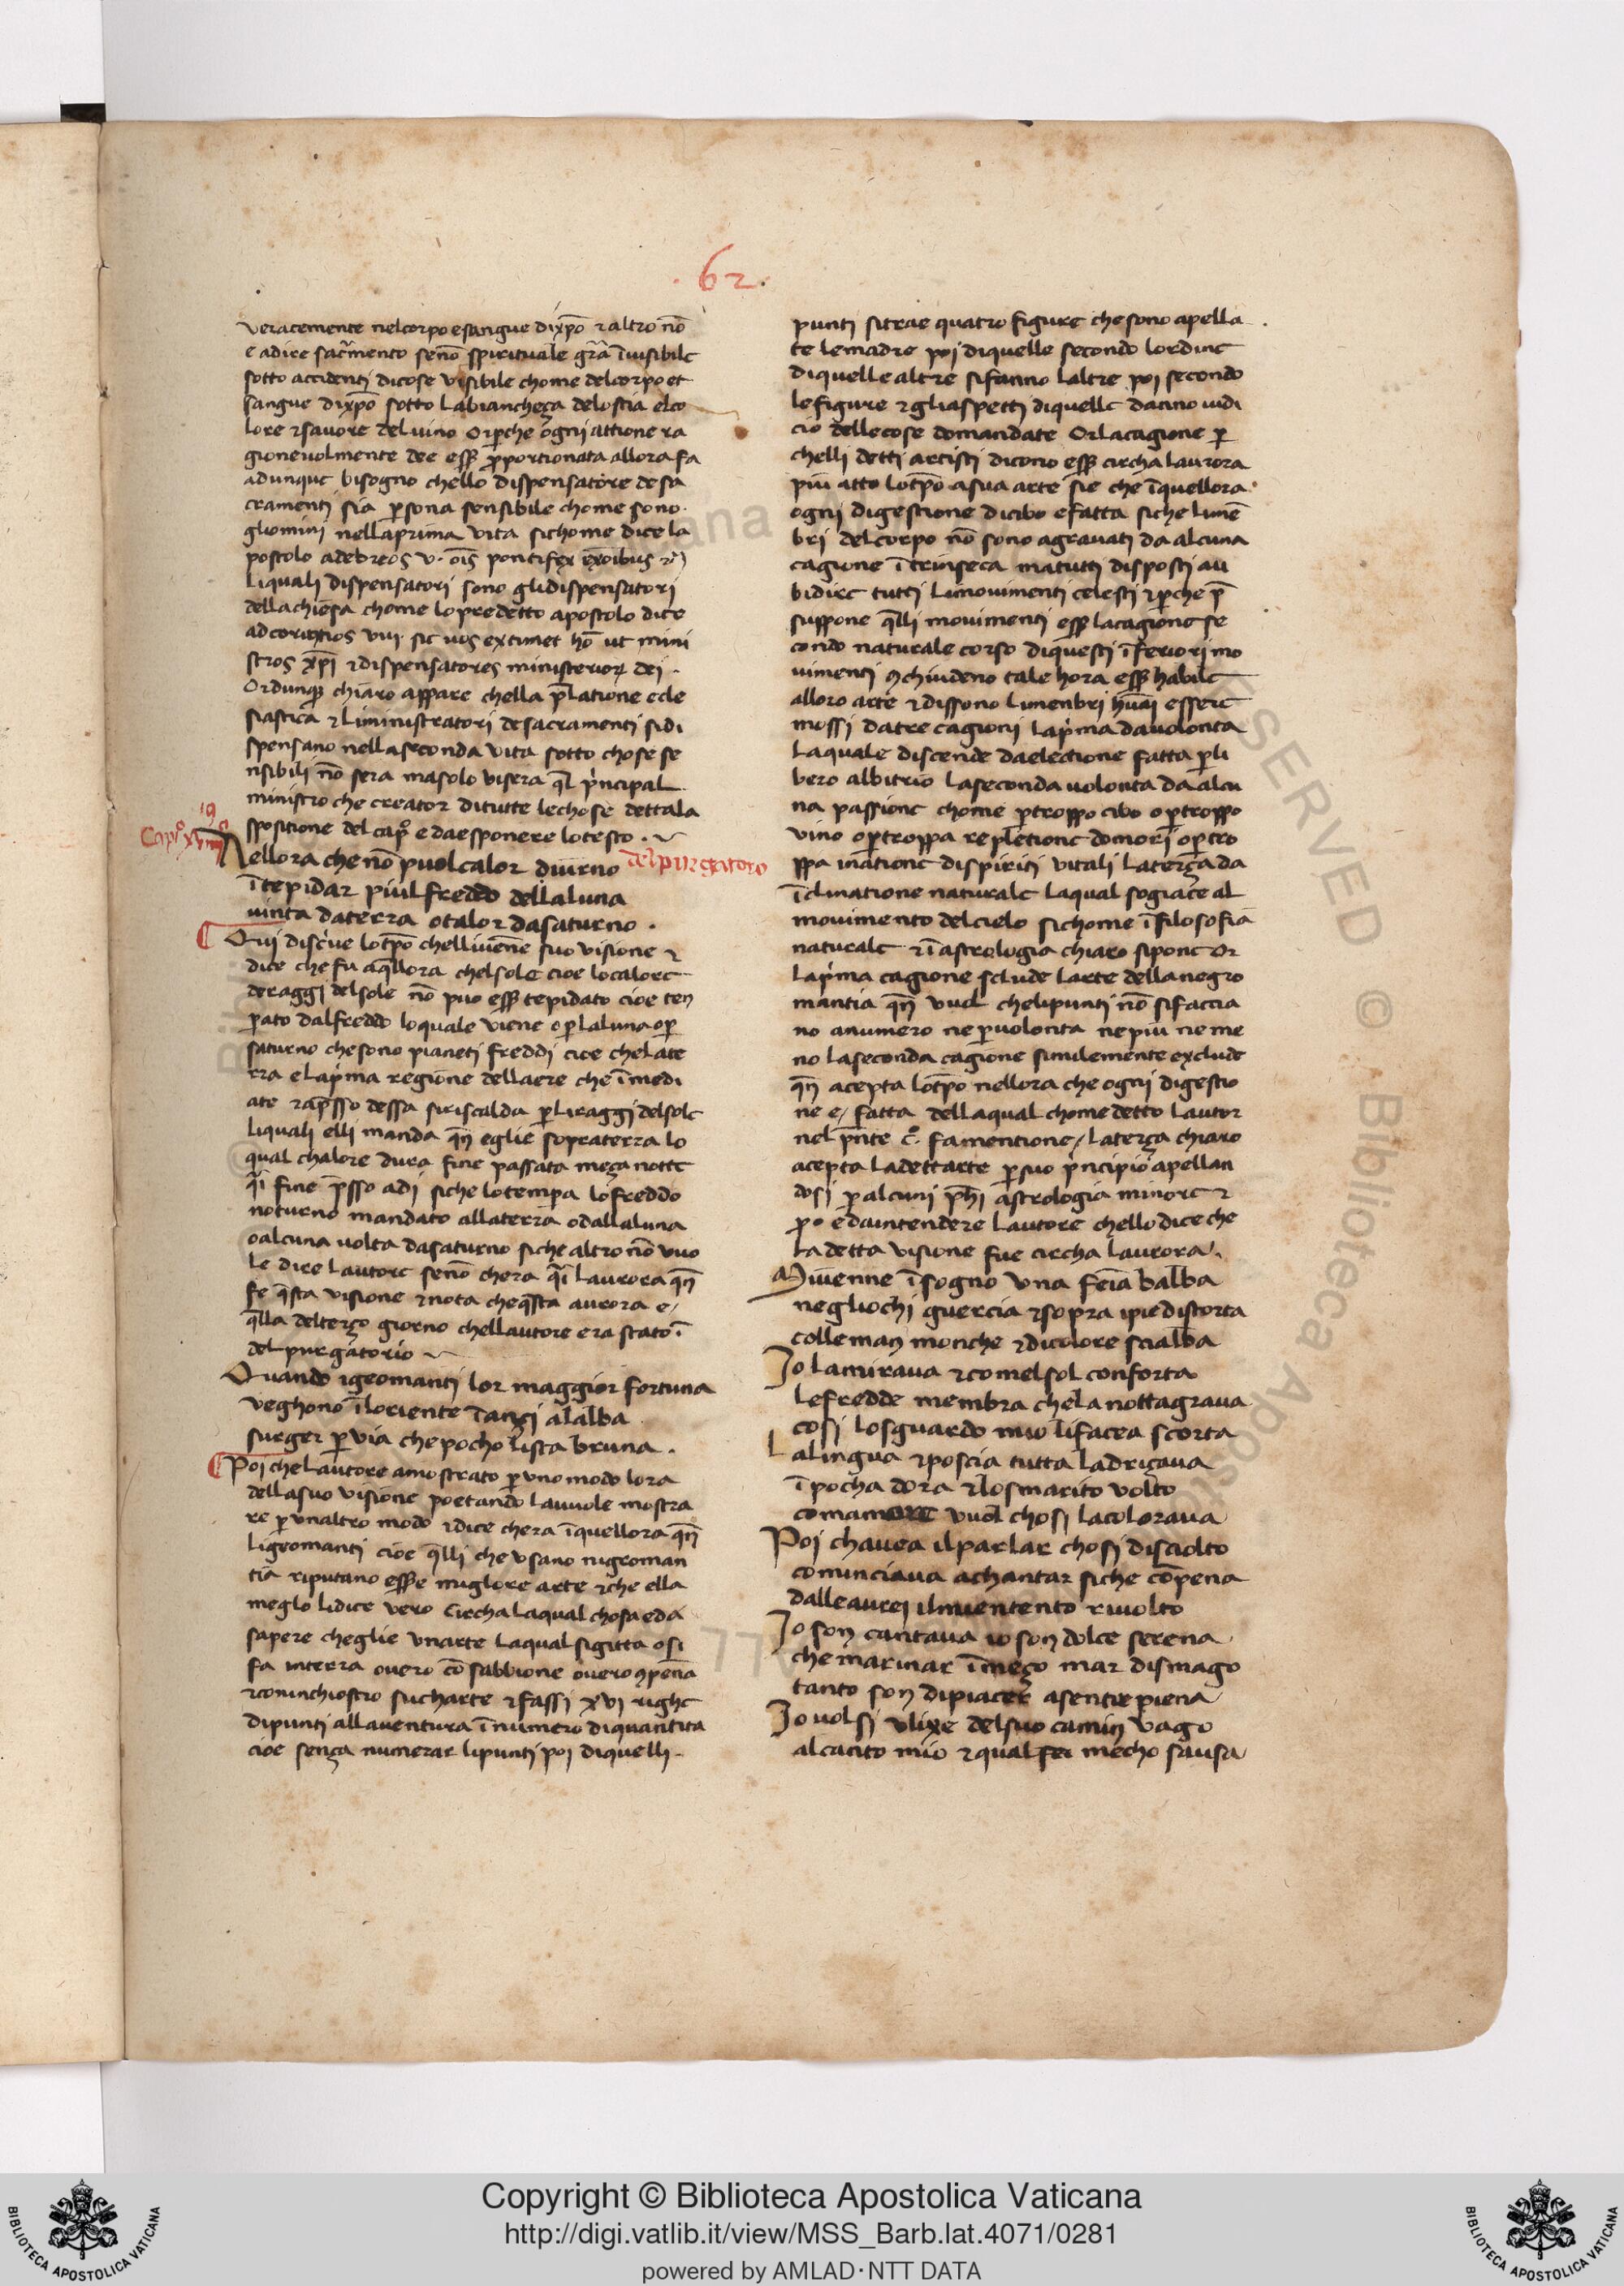 .62.
veracemente nelcorpo esangue dixp̄o ⁊ altro nō
e adire sacr̄mento senō spirituale gr̄a ī uisibile
sotto accidenti dicose visibile chome delcorpo et
sangue dixp̄o sotto labiancheça delostia elco
lore ⁊sauore deluino Orp̱che ogni attione ra
gioneuolmente dee ess̄ p̱portionata allora fa
adunque bisogno chello dispensatore desa
cramenti sia p̱sona sensibile chome sono
gliomini nellaprima vita sichome dice la
postolo adebreos v. oīs pontifex exōibus ⁊c̄
Liquali dispensatori sono glidispensatori
dellachiesa chome lo predetto apostolo dice
adcorintios iiii. sic nos extimet hō ut mini
stros xp̄i ⁊dispensatores ministerioꝝ dei.
Ordunq̄ chiaro appare chella p̄latione ecle
siastica ⁊ liministratori desacramenti sidi
spensano nellaseconda vita sotto chose se
nsibili nō sera masolo visera q̄l p̄ncipal
ministro che creator ditutte lechose dettala
spositione del cap̊ e daesponere lotesto.
19
Cap̊ xviiii
Nellora che nō puolcalor diurno
del purgatoro
ītepidar piulfreddo dellaluna
uinta daterra otalor dasaturno.
Qui discriue lotp̄o chelliuēne suo visione ⁊
dice chefu aq̄llora chelsole cioe localore
deraggi delsole nō puo ess̄ tepidato cioe ten
p̱ato dalfreddo loquale viene o p̱laluna o p̱
saturno chesono pianeti freddi cioe chelate
rra elap̄ma regione dellaere che īmedi
ate ⁊ap̄sso dessa siriscalda p̱liraggi delsole
liquali elli manda q̄n eglie sopraterra lo
qual chalore dura fine passata meça notte
q̄i fine p̄sso adi siche lotempa lofreddo
noturno mandato allaterra odallaluna
oalcuna uolta dasaturno siche altro nō vuo
le dire lautore senō chera q̄i laurora q̄n
fe q̄sta visione ⁊nota cheq̄sta aurora e/
q̄lla delterço giorno chellautore era stato ī
del purgatorio
Quando igeomanti lor maggior fortuna
veghono īloriente īançi alalba
surger p̱ via chepocho lista bruna.
Poi chelautore amostrato p̱ uno modo lora
dellasuo visione poetando lauuole mostra
re p̱ vnaltro modo ⁊dice chera īquellora q̄n
ligeomanti cioe q̄lli che vsano nigroman
tia riputano esse miglore arte ⁊che ella
meglo lidice vero Circha laqual chosa eda
sapere cheglie vnarte laqual sigitta osi
fa interra ouero cō sabbione ouero ꝯpena
⁊coninchiostro sucharte ⁊fassi xvi righe
dipunti allauentura īnumero diquantita
cioe sença numerar lipunti poi diquelli.
punti sitrae quatro figure chesono apella
te lemadre poi diquelle secondo lordine
diquelle altre sifanno laltre poi secondo
lefigure ⁊gliaspetti diquelle danno iudi
cio dellecose domandate Orlacagione p̱
chelli detti artisti dicono ess̄ circha laurora
piu atto lotp̄o asua arte sie che īquellora
ogni digestione dicibo efatta siche limē
bri delcorpo nō sono agrauati da alcuna
cagione ītrinseca matutti disposti au
bidire tutti limouimenti celesti ⁊p̱che p̄
suppone q̄lli mouimenti ess̄ lacagione se
condo naturale corso diquesti īferiori mo
uimenti ꝯchiudeno tale hora ess̄ habile
alloro arte ⁊dissono limenbri hūai essere
mossi datre cagioni lap̄ma dauolonta
laquale discende daelectione fatta p̱li
bero albitrio laseconda uolonta da alcu
na passione chome p̱troppo cibo o p̱troppo
vino o p̱troppa repletione domori o p̱tro
ppa inātione dispiriti vitali laterça da
īclinatione naturale laqual sogiace al
mouimento delcielo sichome īfilosofia
naturale ⁊ī astrologia chiaro sipone Or
lap̄ma cagione sclude larte dellanegro
mantia q̄n vuol chelipunti nō sifaccia
no anumero ne p̱uolonta nepiu ne me
no laseconda cagione similemente exclude
q̄n acepta lotp̄o nellora che ogni digestio
ne e/ fatta dellaqual chome detto lautor
nel p̄nte c̊. famentione/ laterça chiaro
acepta ladettarte p̱suo p̄ncipio apellan
dosi p̱alcuni ph̄i astrologia minore ⁊
p̱o edaintendere lautore chello dice che
la detta visione fue circha laurora.
Miuenne īsogno vna feīa balba
negliochi guercia ⁊sopra ipie distorta
colleman monche ⁊dicolore scialba
Io lamiraua ⁊comelsol conforta
lefredde membra chela nottagraua
cosi losguardo mio lifacea scorta
Lalingua ⁊poscia tutta ladriçaua
īpocha dora ⁊losmarito volto
comamore vuol chosi lacoloraua
Poi chauea ilparlar chosi disciolto
cominciaua achantar siche cōpena
dallei aurei ilmi entento riuolto
Io son cantaua io son dolce serena
chemarinar īmeço mar dismago
tanto son dipiacer asentire piena
Io uolsi vlixe delsuo camin vago
alcanto mio ⁊qual mecho sausa
Copyright © Biblioteca Apostolica Vaticana
http://digi.vatlib.it/view/MSS_Barb.lat.4071/0281
powered by AMLAD·NTT DATA
BIBLIOTECA APOSTOLICA VATICANA
BIBLIOTECA APOSTOLICA VATICANA